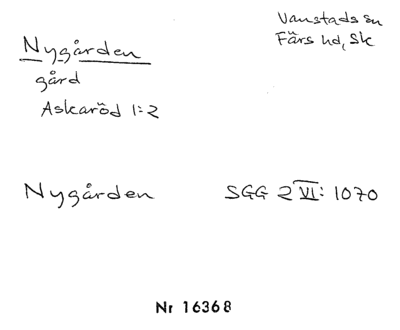 Vanstads sn
Färs hd, Sk
Nygården
gård
Askaröd 1:2
Nygården SGG 2 VI: 1070
Nr 16368